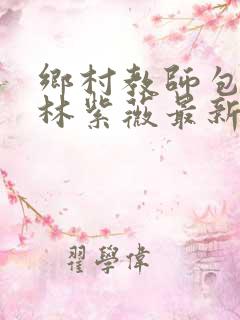 鄉村教師包
林紫薇最新
翟學偉